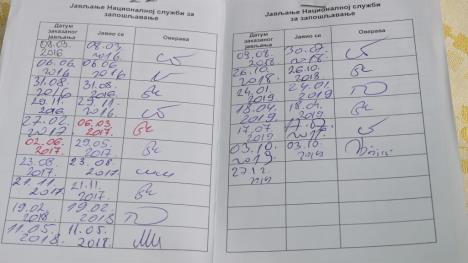 Јављање Националној служби
за запошљавање
Датум заказаног јављања Јавио се Оверава
08.03. 2016 08.03. 2016.
06.06. 2016 06.06 2016
31.08 2016 31.08. 2016.
29.11. 2016 29.11. 2016.
27.02. 2017 06.03 2017.
02.06. 2017. 29.05. 2017.
23.08. 2017. 23.08. 2017
21.11. 2017 21.11. 2017
19.02. 2018 19.02. 2018
11.05. 2018. 11.05. 2018.
Јављање Националној служби
за запошљавање
Датум заказаног јављања Јавио се Оверава
03.08. 2018 30.07. 2018.
26.10. 2018 26.10. 2018
24.01 2019 24.01 2019
18.04. 2019 18.04. 2019.
17.07 2019
03.10. 2019 03.10. 2019
27.12. 2019